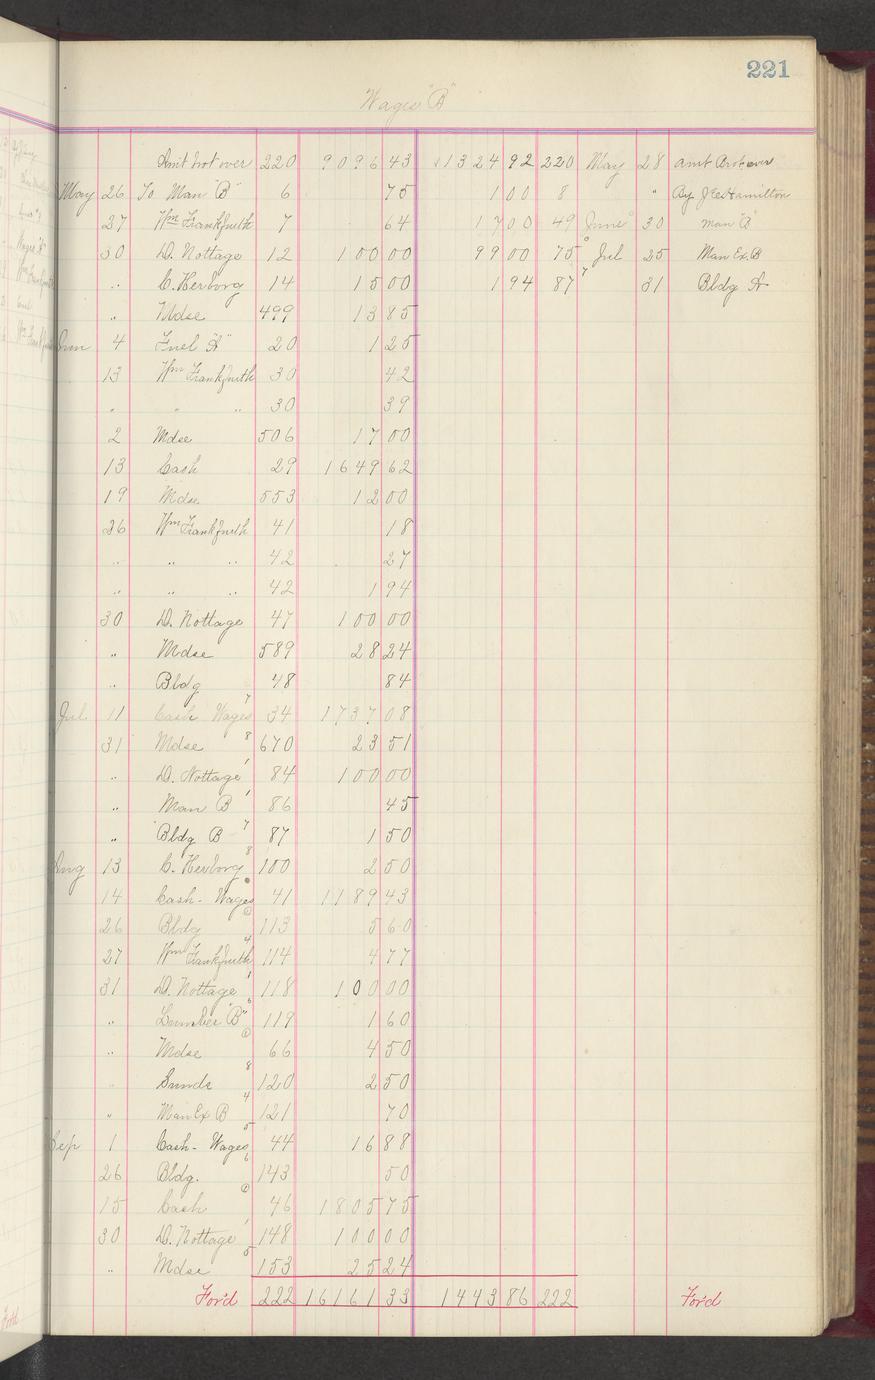 221
Wages "B"
Amt brot over 220 9096 43 1324 92 220 May 28 Amt Brot over
May 26 To Man "B" 6 75 1 00 8 " By J C Hamilton
27 Wm Frankfurth 7 64 17 00 49 June 30 Man "B"
30 D. Nottage 12 100 00 99 00 75 Jul 25 Man Ex. B
" C. Herborg 14 15 00 1 94 87 31 Bldg A
" Mdse 499 13 85
Jun 4 Fuel "A" 20 1 25
13 Wm Frankfurth 30 42
" " " 30 39
2 Mdse 506 17 00
13 Cash 29 1649 62
19 Mdse 553 12 00
26 Wm Frankfurth 41 18
" " " 42 27
" " " 42 1 94
30 D. Nottage 47 100 00
" Mdse 589 28 24
" Bldg 48 84
Jul 11 Cash Wages 7 34 1737 08
31 Mdse 8 670 23 51
" D. Nottage 1 84 100 00
" Man B 1 86 45
" Bldg B 7 87 1 50
Aug 13 C. Herborg 8 100 2 50
14 Cash - Wages 41 1189 43
26 Bldg 6 113 5 60
27 Wm Frankfurth 4 114 4 77
31 D. Nottage 1 118 100 00
" Lumber "B" 6 119 1 60
" Mdse 6 66 4 50
" Sunds 8 120 2 50
" Man Ex B 4 121 70
Sep 1 Cash - Wages 5 44 16 88
26 Bldg. 6 143 50
15 Cash 46 1805 75
30 D. Nottage 1 148 100 00
" Mdse 5 153 25 24
For'd 222 16161 33 1443 86 222 For'd